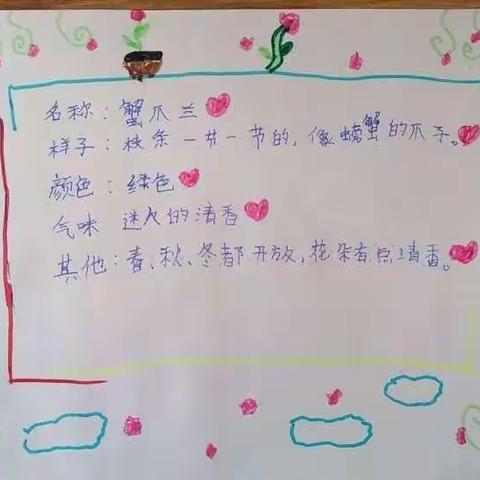 名称：蟹爪兰
样子：枝条一节一节的，像螃蟹的爪子。
颜色：绿色
气味 迷人的清香
其他：春、秋、冬都开放，花朵有点清香。